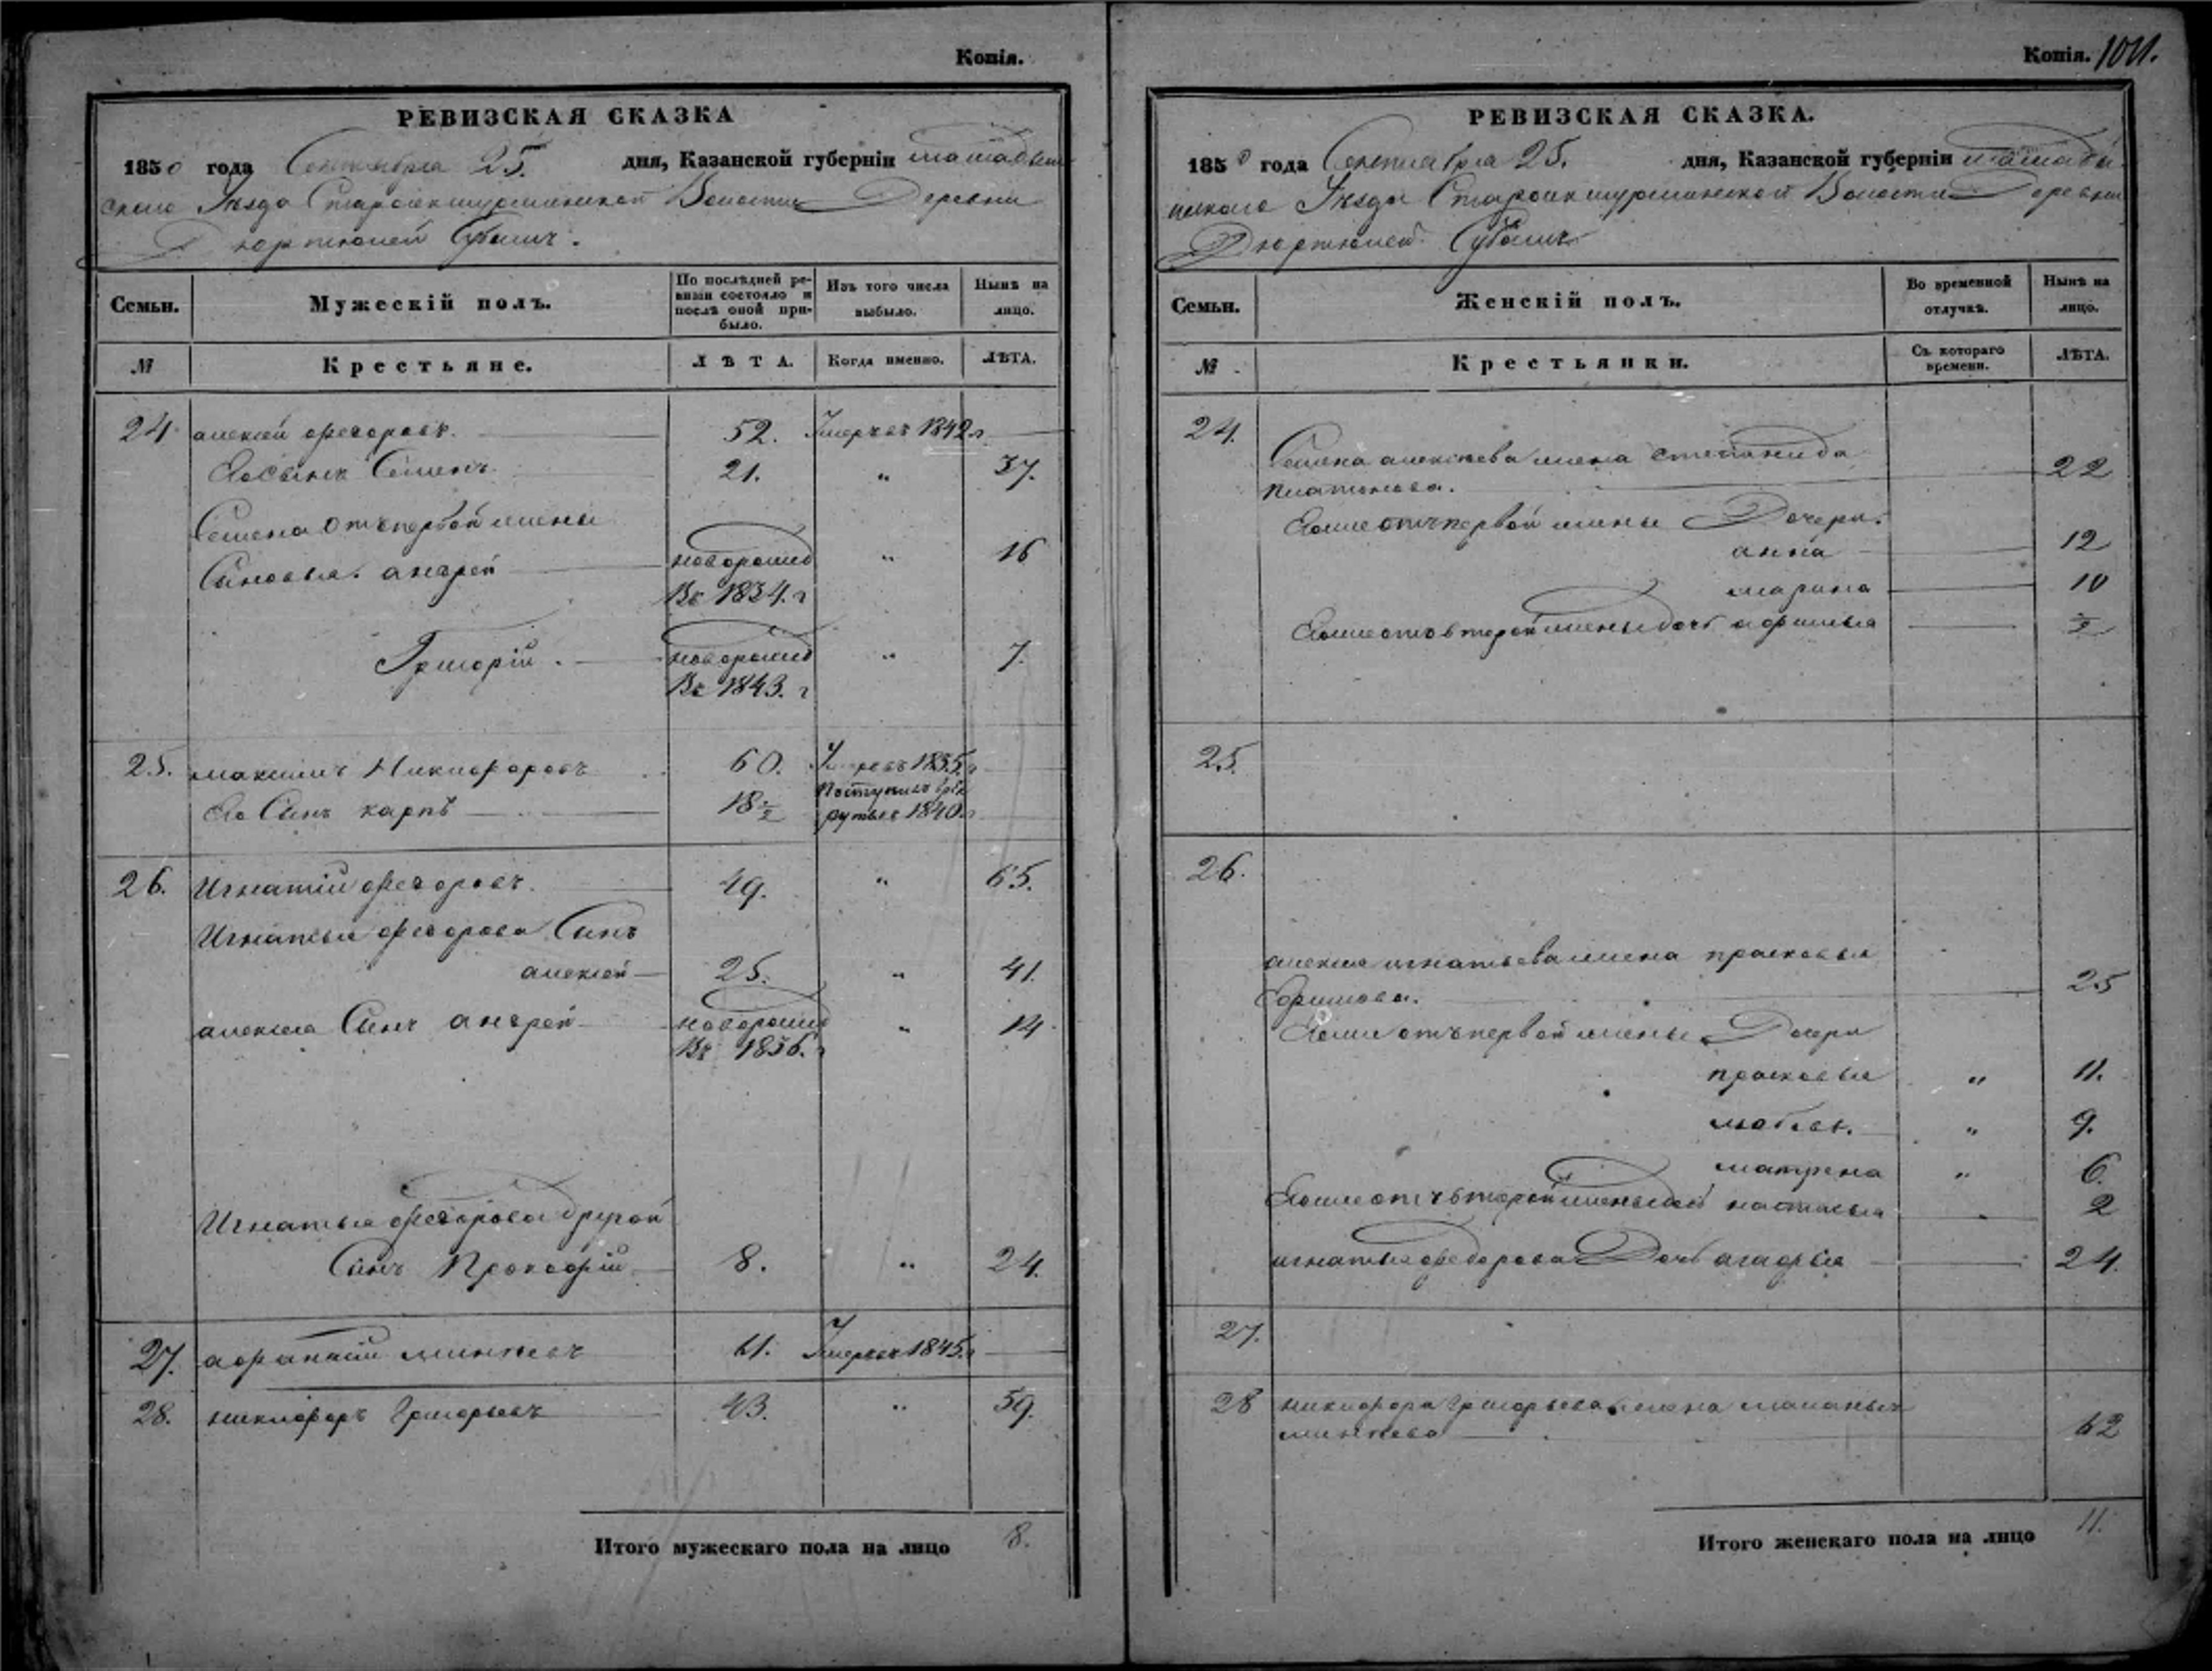 Копія.
РЕВИЗСКАЯ СКАЗКА
1850 года Сентября 25. дня, Казанской губерніи мамадыш
скаго Уѣзда Волости Деревни
Дюртюлей
Семьи. Мужескій полъ. По послѣдней ре-
визіи состояло и
послѣ оной при-
было. Изъ того числа
выбыло. Нынѣ на
лицо.
№ Крестьяне. ЛѢТА. Когда именно. ЛѢТА.
24 алексей федоровъ. 52. Умеръ въ 1842 г
Его сынъ Семенъ 21. " 37.
Семена отъ первой жены
Сыновья. андрей новорожд " 16
Въ 1834. г
Григорій. новорожд " 7.
Въ 1843. г
25. максимъ Никифоровъ 60. Умеръ въ 1835. г
Его Сынъ карпъ 18½ Поступилъ врек
руты въ 1840 г
26. Игнатій федоровъ. 49. " 65.
Игнатья федорова Сынъ
алексей 25. " 41.
алексея Сынъ андрей новорожд " 14
Въ 1836. г
Игнатья федорова другой
Сынъ Прокофій 8. " 24.
27. афанасій 61. Умеръ въ 1845. г
28. никифоръ Григорьевъ 43. " 59.
Итого мужескаго пола на лицо 8.
Копія.
РЕВИЗСКАЯ СКАЗКА.
1850 года Сентября 25. дня, Казанской губерніи мамады
шскаго Уѣзда Волости Деревни
Дюртюлей
Семьи. Женскій полъ. Во временной
отлучкѣ. Нынѣ на
лицо.
№ Крестьянки. Съ котораго
времени. ЛѢТА.
24. Семена алексеева жена степанида
платонова. 22
Егоже отъ первой жены Дочери.
анна 12
марина 10
Егоже отъ второй жены дочь афимья ½
25.
26.
алексея игнатьева жена прасковья
Ефимова. 25
Егоже отъ первой жены Дочери
прасковья " 11.
любовь. " 9.
матрена " 6.
Егоже отъ второй жены дочь настасья 2
игнатья федорова Дочь агафья 24.
27.
28 никифора Григорьева жена маланья
62
Итого женскаго пола на лицо 11.